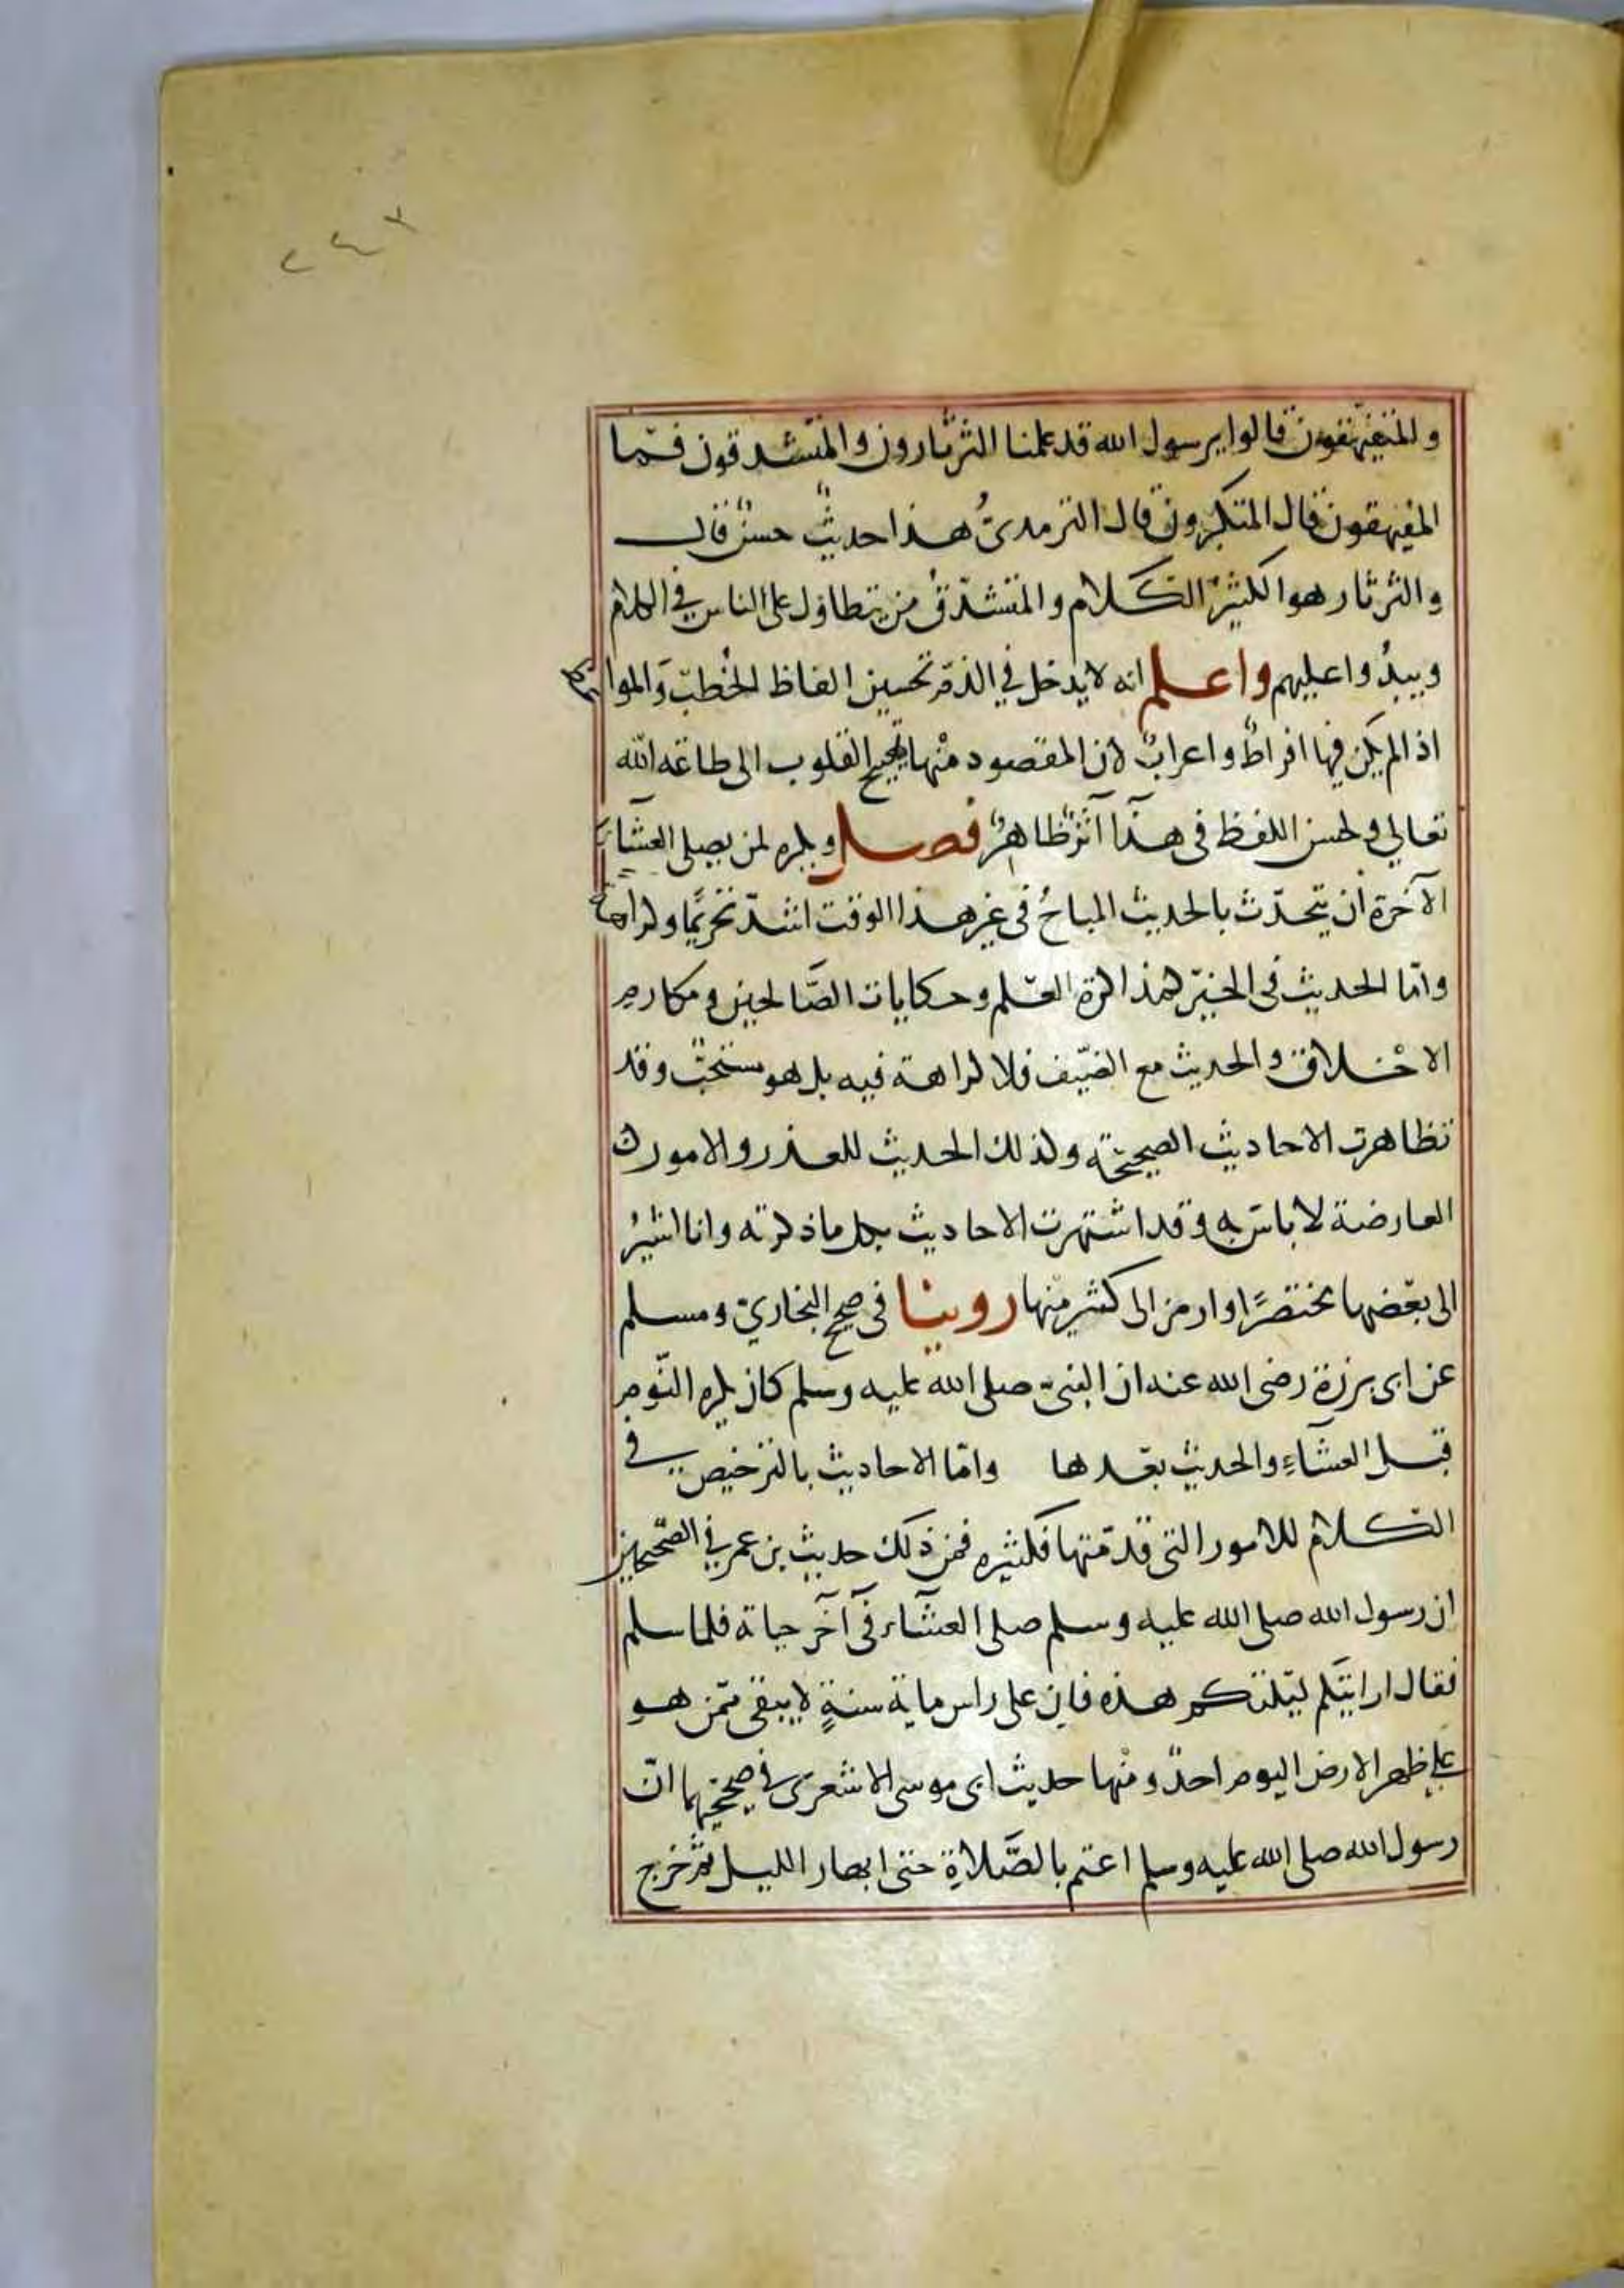 ٢٤٢
والمتفيهقون قالوا يرسول الله قد علمنا الثرثارون والمتشدقون فما
المفيهقون قال المتكبرون قال الترمدىُّ هذا حديثٌ حسنٌ قال
والثرثار هو الكثير الكلام والمتشدّق من يتطاول على الناس في الكلام
ويبدُوا عليهم واعلم انه لا يدخل في الذمّ تحسين الفاظ الخُطبِ والمواعظ
اذا لم يكن فيها افراطٌ واعرابٌ لان المقصود منها تهييج القلوب الى طاعة الله
تعالي ولحسن اللفظ فى هذا اثرٌ ظاهرٌ فصل ويكره لمن يصلى العشاء
الآخرة ان يتحدّث بالحديث المباحُ فى غير هذا الوقت اشدّ تحريمًا وكراهة
وامّا الحديث فى الخير كمذاكرة العلم وحكايات الصَّالحين ومكارم
الاخلاق والحديث مع الضيف فلا كراهة فيه بل هو مستحبٌّ وقد
تظاهرت الاحاديث الصحيحة وكذلك الحديث للعذر والامور
العارضة لا باس به وقد اشتهرت الاحاديث بكل ما ذكرته وانا اشيرُ
الى بعضها مختصرًا وارمز الى كثير منها روينا فى صحيح البخارىّ ومسلم
عن ابى برزة رضى الله عنه ان النبىّ صلى الله عليه وسلم كان يكره النّوم
قبل العشاءِ والحديث بعدها وامّا الاحاديث بالترخيص في
الكلام للامور التى قدّمتها فكثيره فمن ذلك حديث بن عمر في الصّحيحين
ان رسول الله صلى الله عليه وسلم صلى العشاء فى آخر حياته فلما سلم
فقال ارايتكم ليلتكم هذه فان على راس ماية سنةٍ لا يبقى ممّن هو
على ظهر الارض اليوم احدٌ ومنها حديث ابى موسى الاشعرى في صحيحيهما انّ
رسول الله صلى الله عليه وسلم اعتم بالصَّلاةِ حتى ابهار الليل ثمّ خرج